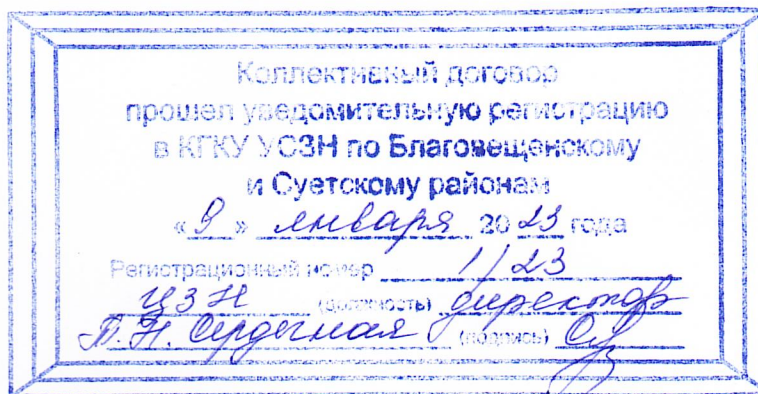 Коллективный договор
прошел уведомительную регистрацию
в КГКУ УСЗН по Благовещенскому
и Суетскому районам
« 9 » января 20 23 года
Регистрационный номер 1/23
ЦЗН (должность) директор
Т.Н. Сердечная (подпись)